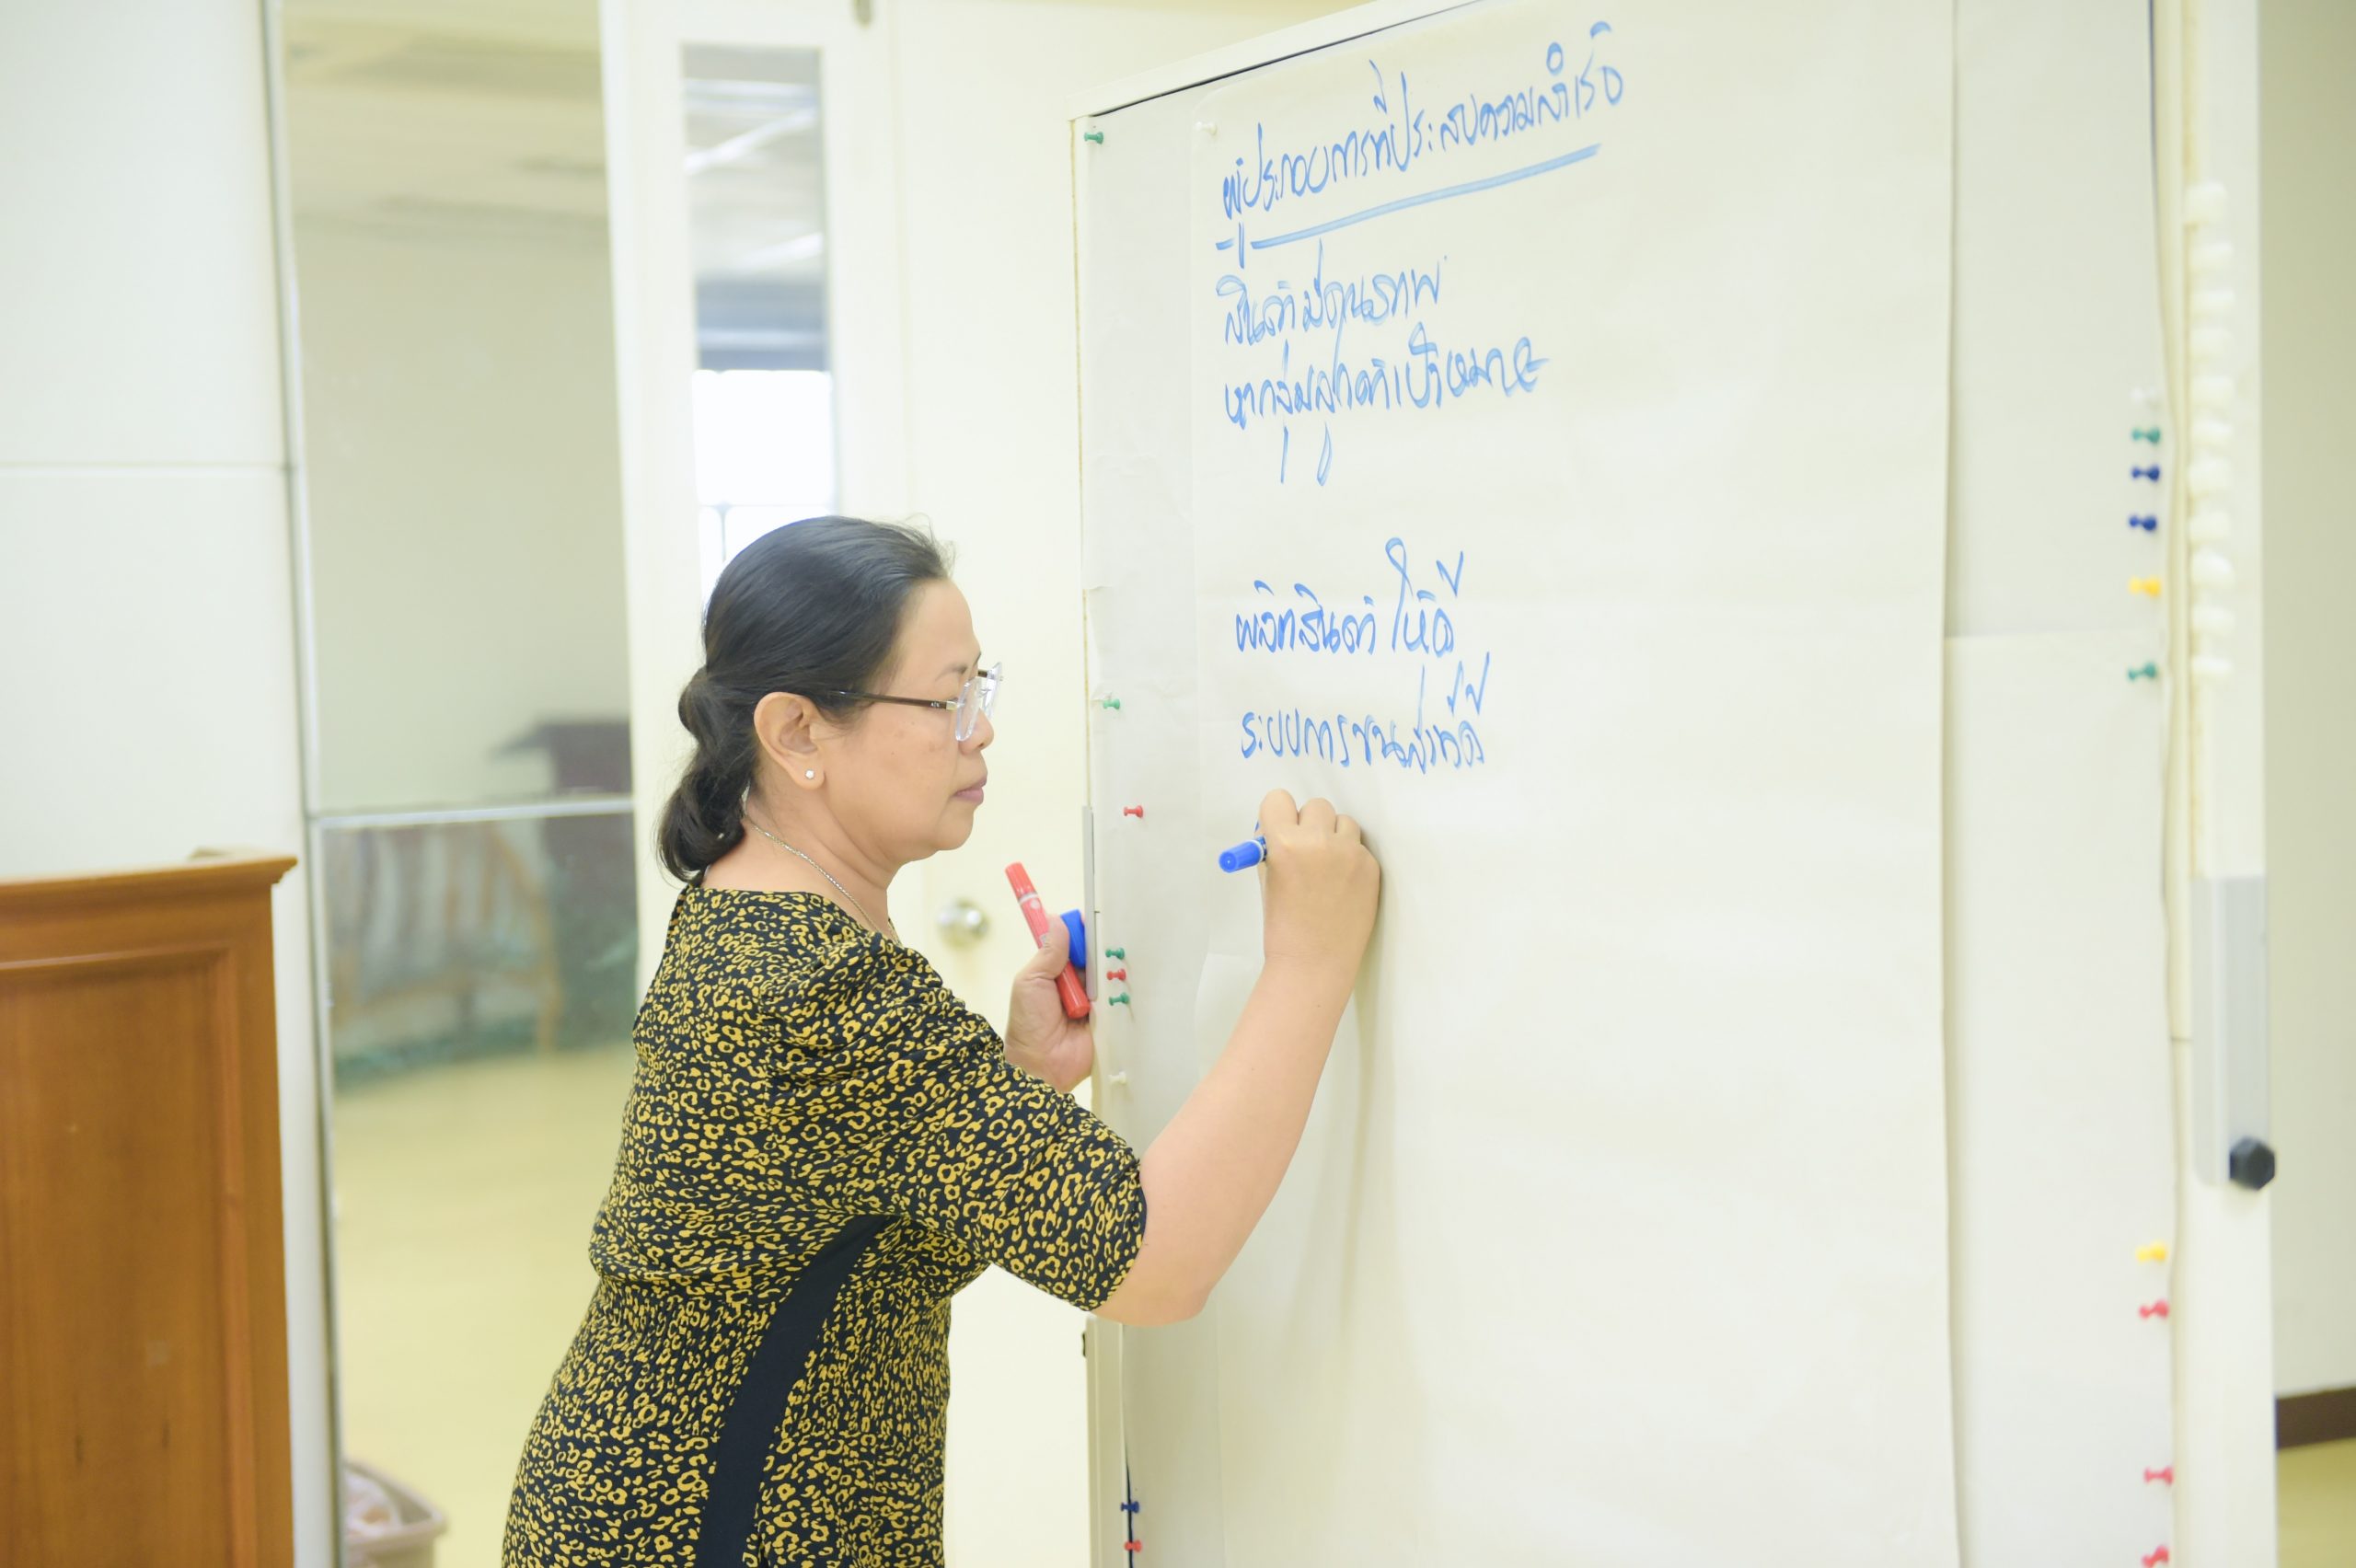 ผู้ประกอบการที่ประสบความสำเร็จ
สินค้ามีคุณภาพ
หากลุ่มลูกค้าเป้าหมาย
ผลิตสินค้า ให้ดี
ระบบการขนส่งที่ดี